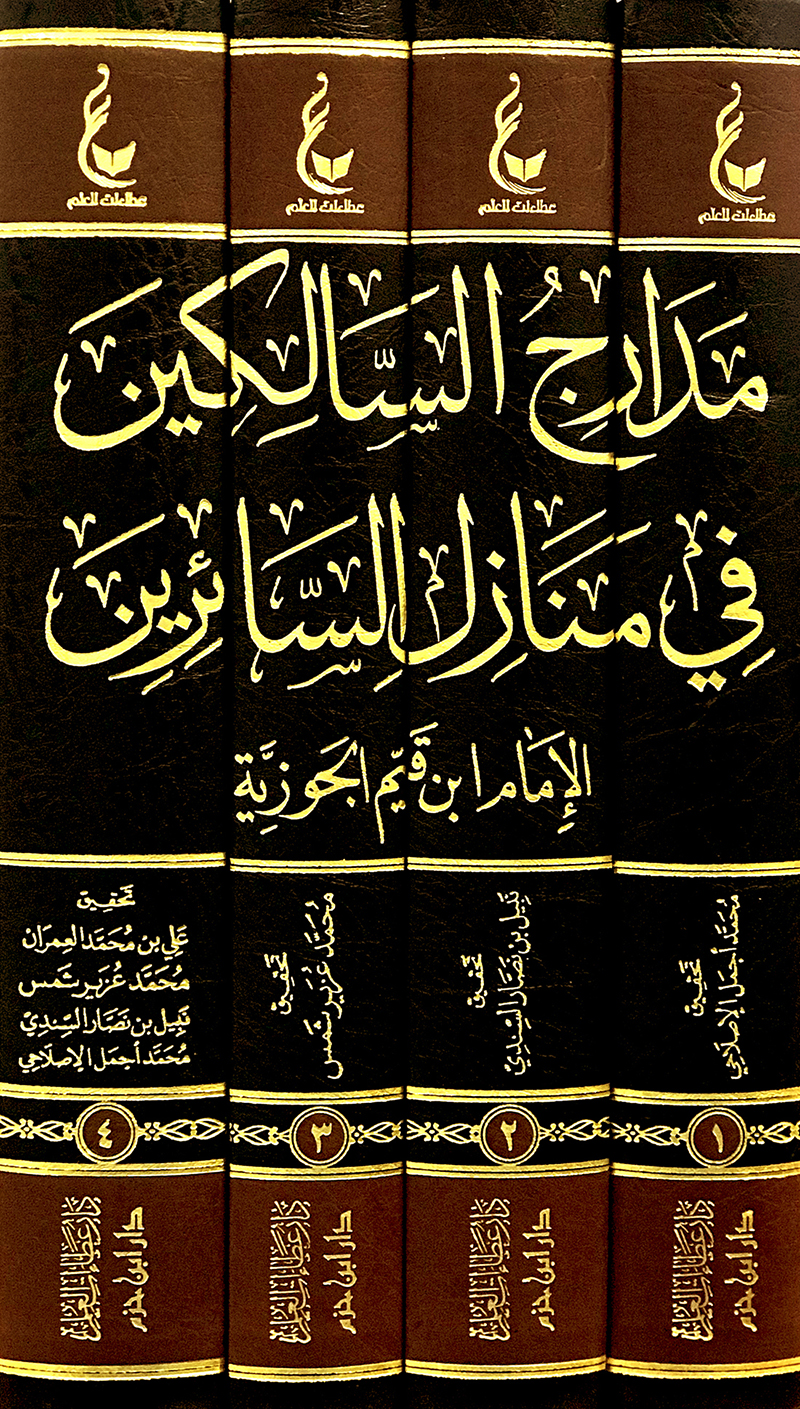 عطاءات العلم
عطاءات العلم
عطاءات العلم
عطاءات العلم
مَدَارِجُ السَّالِكِينَ
فِي مَنَازِلِ السَّائِرِينَ
الإِمَام ابن قَيِّم الجَوزِيَّة
تحقيق
مُحَمَّد أجمَل الإصلَاحِي
تحقيق
نَبِيل بن نَصَّار السِّنْدِيّ
تحقيق
مُحَمَّد عُزَير شَمس
تحقيق
عَلِي بن مُحَمَّد العِمرَان
مُحَمَّد عُزَير شَمس
نَبِيل بن نَصَّار السِّنْدِيّ
مُحَمَّد أجمَل الإصلَاحِي
١
٢
٣
٤
دار عطاءات العلم
دار ابن حزم
دار عطاءات العلم
دار ابن حزم
دار عطاءات العلم
دار ابن حزم
دار عطاءات العلم
دار ابن حزم